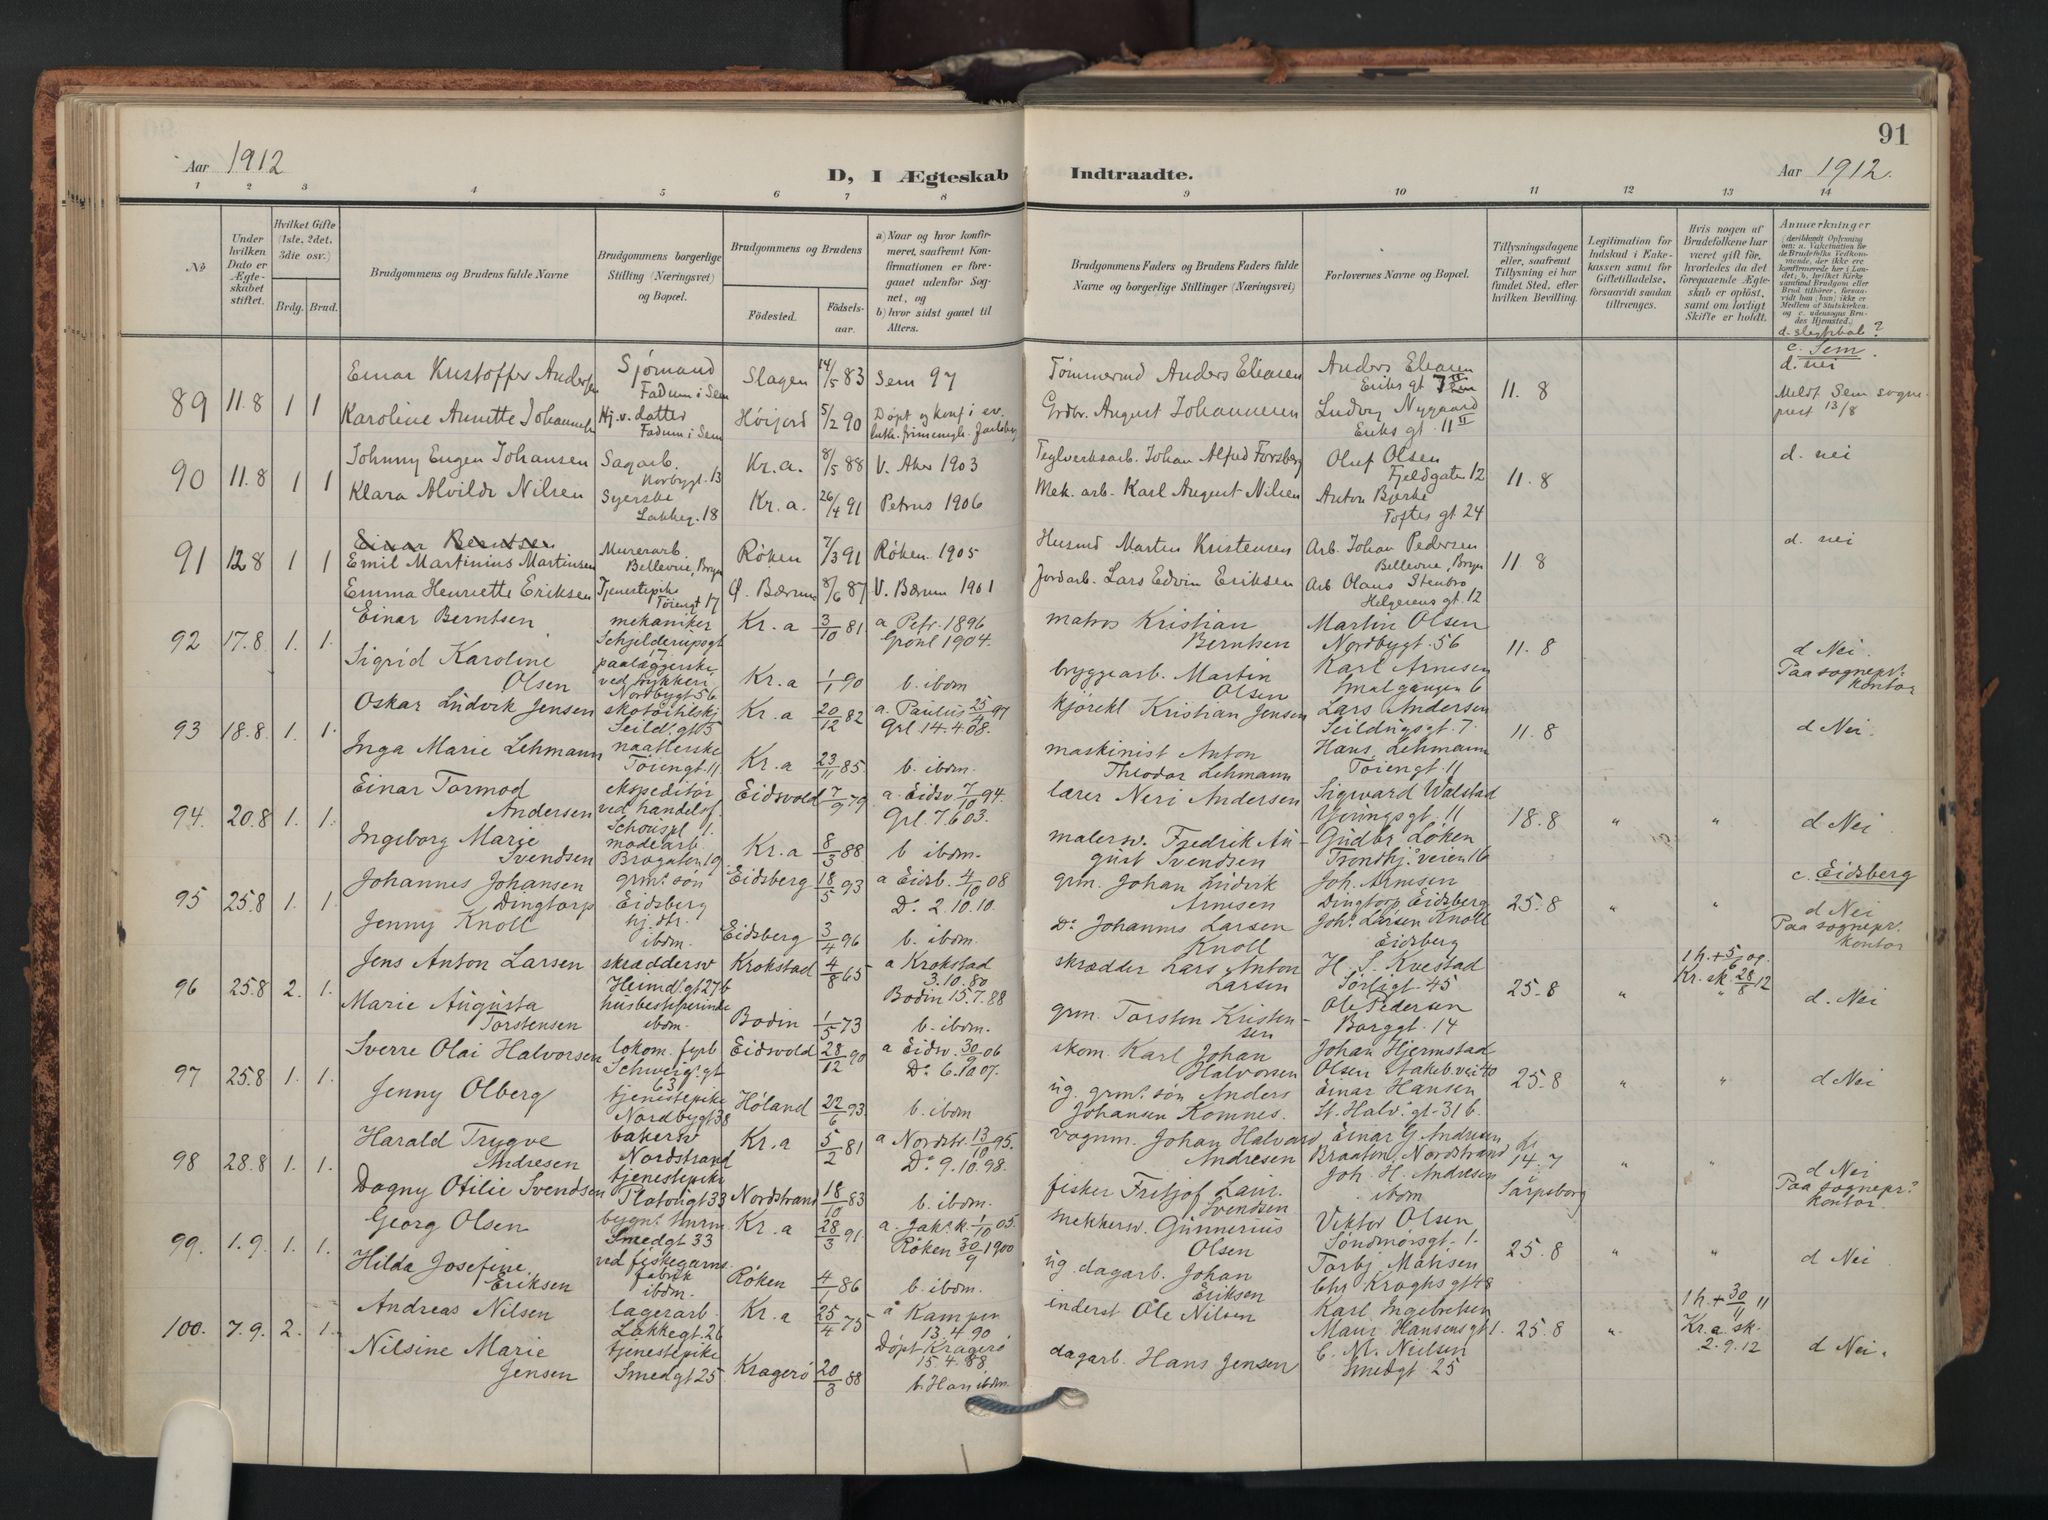 91
Aar 1912
D, I Ægteskab Indtraadte.
Aar 1912.
1 2 3 4 5 6 7 8 9 10 11 12 13 14
No
Under hvilken Dato er Ægteskabet stiftet.
Hvilket Gifte (1ste, 2det, 3die osv.)
Brdg. Brud.
Brudgommens og Brudens fulde Navne
Brudgommens borgerlige Stilling (Næringsvei) og Bopæl.
Brudgommens og Brudens
Fødested. Fødselsaar.
a) Naar og hvor konfirmeret, saafremt Konfirmationen er foregaaet udenfor Sognet, og
b) hvor sidst gaaet til Alters.
Brudgommens Faders og Brudens Faders fulde Navne og borgerlige Stillinger (Næringsvei)
Forlovernes Navne og Bopæl.
Tillysningsdagene eller, saafremt Tillysning ei har fundet Sted, efter hvilken Bevilling.
Legitimation for Indskud i Enkekassen samt for Giftetilladelse, forsaavidt saadan tiltrænges.
Hvis nogen af Brudefolkene har været gift før, hvorledes da det foregaaende Ægteskab er opløst, samt om lovligt Skifte er holdt.
Anmærkninger
d. slegtskab?
89 11.8 1 1 Einar Kristoffer Andersen Sjømand Fadum i Sem Slagen 14/5 83 Sem 97 Tømmermd Anders Eliasen Anders Eliasen Eriks gt 11. 8 c. Sem. d. nei
Karoline Annette Johannesen Hj.v. datter Fadum i Sem Høijord 5/2 90 Døpt og konf i ev. luth. frimenigh. Jarlsberg Grdbr. August Johannesen Ludvig Nygaard Eriks gt. 11 II Meldt Sem sogneprest 13/8
90 11.8 1 1 Johnny Eugen Johansen Sagarb. Norbygt. 13 Kr.a. 8/5 88 V. Aker 1903 Teglverksarb. Johan Alfred Forsberg Oluf Olsen Fjeldgaten 12 11. 8 d. nei
Klara Alvilde Nilsen Syerske Lakkeg. 18 Kr.a. 26/4 91 Petrus 1906 Mek. arb. Karl August Nilsen Anton Bjerke Toftes gt 24
91 12.8 1 1 Einar Berntsen
Emil Martinius Martinsen Murerarb. Bellevue, Bryn Røken 7/3 91 Røken 1905 Husmd Martin Kristensen Arb. Johan Pedersen Bellevue, Bryn 11. 8 d. nei
Emma Henriette Eriksen Tjenestepike Tøiengt 17 Ø. Bærum 8/6 87 V. Bærum 1901 Jordarb. Lars Edvin Eriksen Arb Olaus Stenbro Helgesens gt. 12
92 17.8 1. 1. Einar Berntsen mekaniker Schjelderupsgt 17 Kr.a 3/10 81 a Petr. 1896 Grønl 1904. matros Kristian Berntsen Martin Olsen Nordbygt. 56 11. 8 d Nei.
Sigrid Karoline Olsen paalæggerske ved trykkeri Nordbygt 56 Kr.a 1/1 90 b. ibdm bryggearb. Martin Olsen Karl Arnesen Smalgangen 6 Paa sognepr. kontor
93 18.8. 1. 1. Oskar Ludvik Jensen skotøitilskj Seild. gt 5 Kr.a 20/12 82 a. Paulus 25/4 97 Grl. 14.4.08. kjørekl Kristian Jensen Lars Andersen Seildugsgt. 7. 11. 8 d Nei.
Inga Marie Lehmann naatlerske Tøiengt. 11 Kr.a 23/11 85. b. ibdm. maskinist Anton Theodor Lehmann Hans Lehmann Tøiengt. 11
94. 20.8 1. 1. Einar Tormod Andersen ekspeditør ved handelsf. Schouspl 1. Eidsvold 7/9 79. a. Eidsv. 7/10 94. Grl. 7.6 03. lærer Neri Andersen Sigvard Walstad gt. 11 18.8 " " d Nei
Ingeborg Marie Svendsen modearb. Brogaten 19 Kr.a 8/3 88 b ibdm. malersv. Fredrik August Svendsen Gudbr. Løken Trondhj.veien 16
95 25.8 1. 1. Johannes Johansen Dingtorp grm. søn Eidsberg Eidsberg 18/5 93 a Eidsb. 4/10 08 Do 2.10.10. grm. Johan Ludvik Arnesen Joh. Arnesen Dingtorp Eidsberg 25.8 " " c. Eidsberg d Nei
Jenny Knoll hj. dtr. ibdm. Eidsberg 3/4 96 b. ibdm. Do Johannes Larsen Knoll Joh. Larsen Knoll Eidsberg Paa sognepr. kontor
96 25.8 2. 1. Jens Anton Larsen skræddersv Heimd. gt 27b Krokstad 4/8 65 a Krokstad 3.10.80 skrædder Lars Anton Larsen H. S. Kvestad Sørligt. 45 25.8 " 1 h. + 5/6 09. Kr. sk. 28/8 12 d. Nei
Marie Augusta Torstensen husbestyrerinde ibdm. Bodin 1/5 73 Bodin 15.7.88 b. ibdm. grm. Torsten Kristensen Ole Pedersen Borggt. 14
97 25.8 1. 1. Sverre Olai Halvorsen lokom. fyrb Schweig. gt 63 Eidsvold 28/12 90 a Eidsv. 30/9 06 Do 6.10 07. skom. Karl Johan Halvorsen Johan Hjermstad Olsen Jakob. vei 40 25.8 " " d Nei
Jenny Olberg tjenestepike Nordbygt 38 Høland 22/6 93. b. ibdm. ug. grm. søn Anders Johansen Komnes. Einar Hansen St. Halv. gt. 31 b.
98 28.8 1. 1. Harald Trygve Andresen bakersv Nordstrand Kr.a 5/2 81 a Nordstr. 13/10 95. Do 9.10.98. vognm. Johan Halvard Andresen Einar G Andresen Braaten, Nordstrand 14.7 Sarpsborg " " d Nei
Dagny Otilie Svendsen tjenestepike Tostrupgt 33 Nordstrand 18/10 83 b. ibdm. fisker Fritjof Laur. Svendsen Joh. H. Andresen ibdm Paa sognepr. kontor.
99. 1.9. 1. 1. Georg Olsen bygn. snm Smedgt 33 Kr.a 28/3 91. a. Jak. k. 1/10 05. snekkersv. Gunnerius Olsen Viktor Olsen Søndmørsgt. 1. 25.8 " " d Nei
Hilda Josefine Eriksen ved fiskegarns fabrik ibdm. Røken 4/1 86 Røken 30/9 1900 b. ibdm. ug. dagarb. Johan Eriksen Torbj. Mathisen Chr Kroghs gt 48
100. 7.9. 2. 1. Andreas Nilsen lagerarb. Lakkegt. 26 Kr.a 25/4 75 a Kampen 13.4.90 inderst Ole Nilsen Karl Ingebretsen Maur Hansensgt 1. 25.8 " 1 h. + 30/11 11 Kr.a. sk. 2.9.12 d Nei.
Nilsine Marie Jensen tjenestepike Smedgt 25 Kragerø 20/3 88 Døpt Kragerø 15.4.88. b. Han ibdm. dagarb. Hans Jensen C. M. Neilsen Smedgt. 25